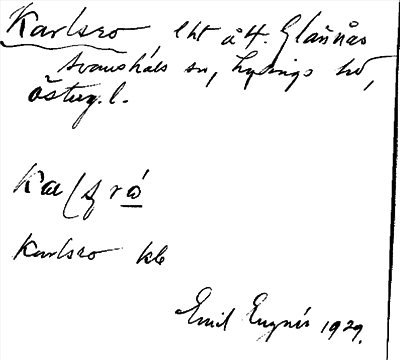 Karlsro lht å H. Glännås
Svanshals sn, Lysings hd,
Östergl.
Karlsro kb
Emil Eugnér 1929.